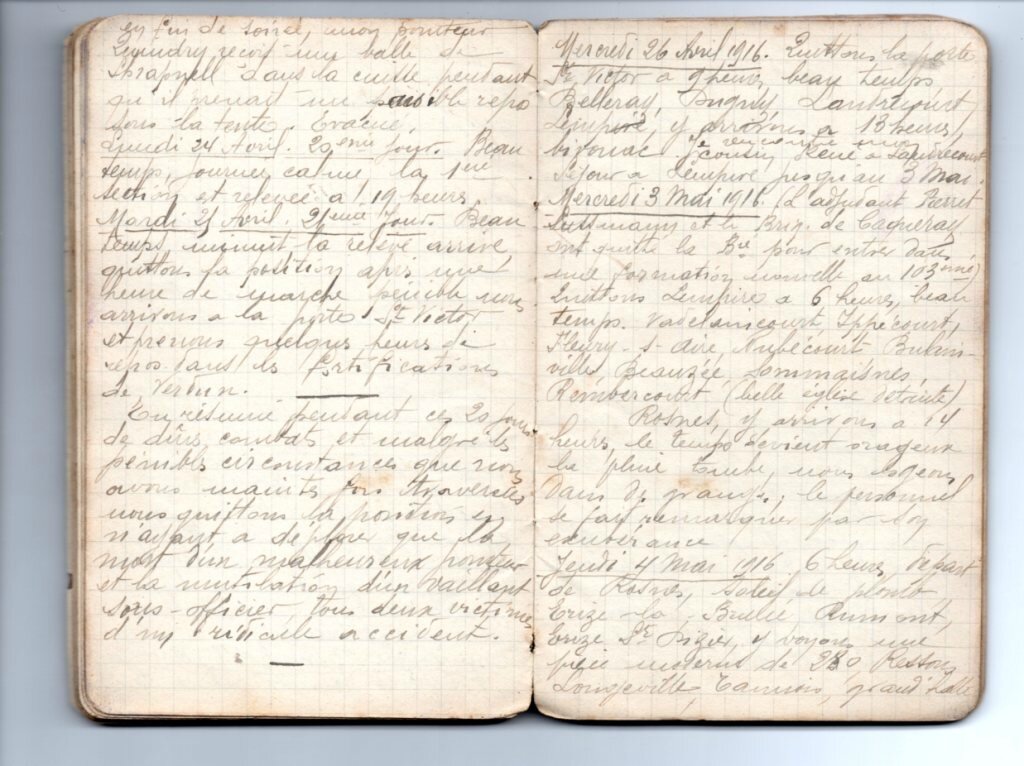 en fin de soirée, mon pointeur
reçoit une balle de
Shrapnell dans la cuisse pendant
qu'il prenait un repo
sous la tente. Evacué.
Lundi 24 Avril. 20eme Jour. Beau
temps, journée calme la 1ere
section est relevée à 19 heures.
Mardi 25 Avril. 21eme Jour. Beau
temps, minuit la relève arrive,
quittons la position après une
heure de marche pénible nous
arrivons a la porte St Victor
et prenons quelques heurs de
repos dans les Fortifications
de Verdun.
En résumé pendant ces 20 jours
de durs combats et malgré les
pénibles circonstances que nous
avons maintes fois traversées
nous quittons la position en
n'ayant a déplorer que la
mort d'un malheureux pointeur
et la mutilation d'un vaillant
sous-officier, tous deux victimes
d'un ridicule accident.
Mercredi 26 Avril 1916. Quittons la porte
St Victor a 9 heures, beau temps
Belleray, Dugny, Landrecourt
Lempire, y arrivons a 13 heures,
bivouac Je rencontre mon
cousin René a Landrecourt
Séjour a Lempire jusqu'au 3 Mai.
Mercredi 3 Mai 1916. (L'adjudant Perret
et le Brig. de Cagneray
ont quitté la Bie pour entrer dans
une formation nouvelle au 103eme)
Quittons Lempire a 6 heures, beau
temps. Vadelaincourt Ippécourt,
Fleury-s-Aire, Nubécourt Bulain-
ville, Beauzée, Sommaisnes,
Rembercourt (belle église détruite)
Rosnes, y arrivons a 14
heurs, le temps devient orageux
la pluie tombe, nous logeons
dans des granges, le personnel
se fait remarquer par son
exubérance
Jeudi 4 Mai 1916 6 heures départ
de Rosnes, soleil de plomb,
Erize-la-Brulée Rumont,
Erize St Dizier, y voyons une
pièce moderne de Ressons,
Longeville, Tannois, grand'halte